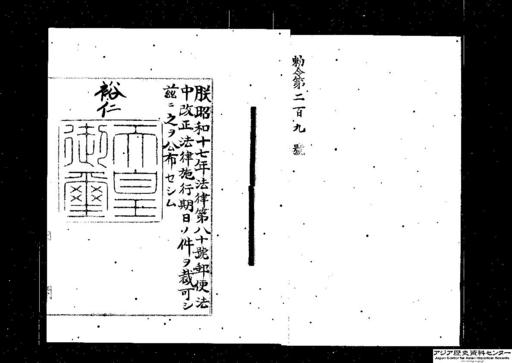 勅令第二百九號
朕昭和十七年法律第八十號郵便法
中改正法律施行期日ノ件ヲ裁可シ
茲ニ之ヲ公布セシム
裕仁
天皇
御璽
アジア歴史資料センター
Japan Center for Asian Historical Records